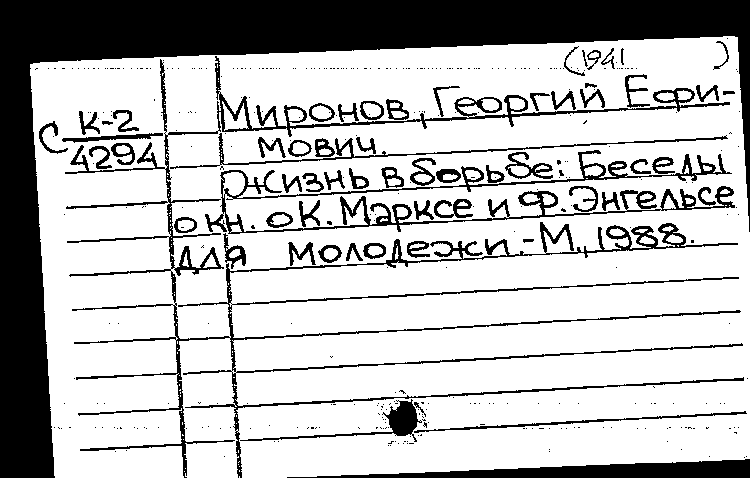 (1941 )
Миронов, Георгий Ефи-
С К-2
4294
мович.
Жизнь в борьбе: Беседы
о кн. о К. Марксе и Ф. Энгельсе
для молодежи.-М., 1988.